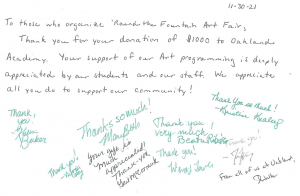 11-30-21
To those who organize 'Round the Fountain Art Fair,
Thank you for your donation of $1000 to Oaklands
Academy. Your support of our Art programming is deeply
appreciated by our students and our staff. We appreciate
all you do to support our community!
Thank you,
Thanks so much!
Thank you
very much!
Thank You so Much!
Thank you!
Your gift is
much
appreciated!
Thank you
Thank you!
Thank you!
From all of us at Oakland,